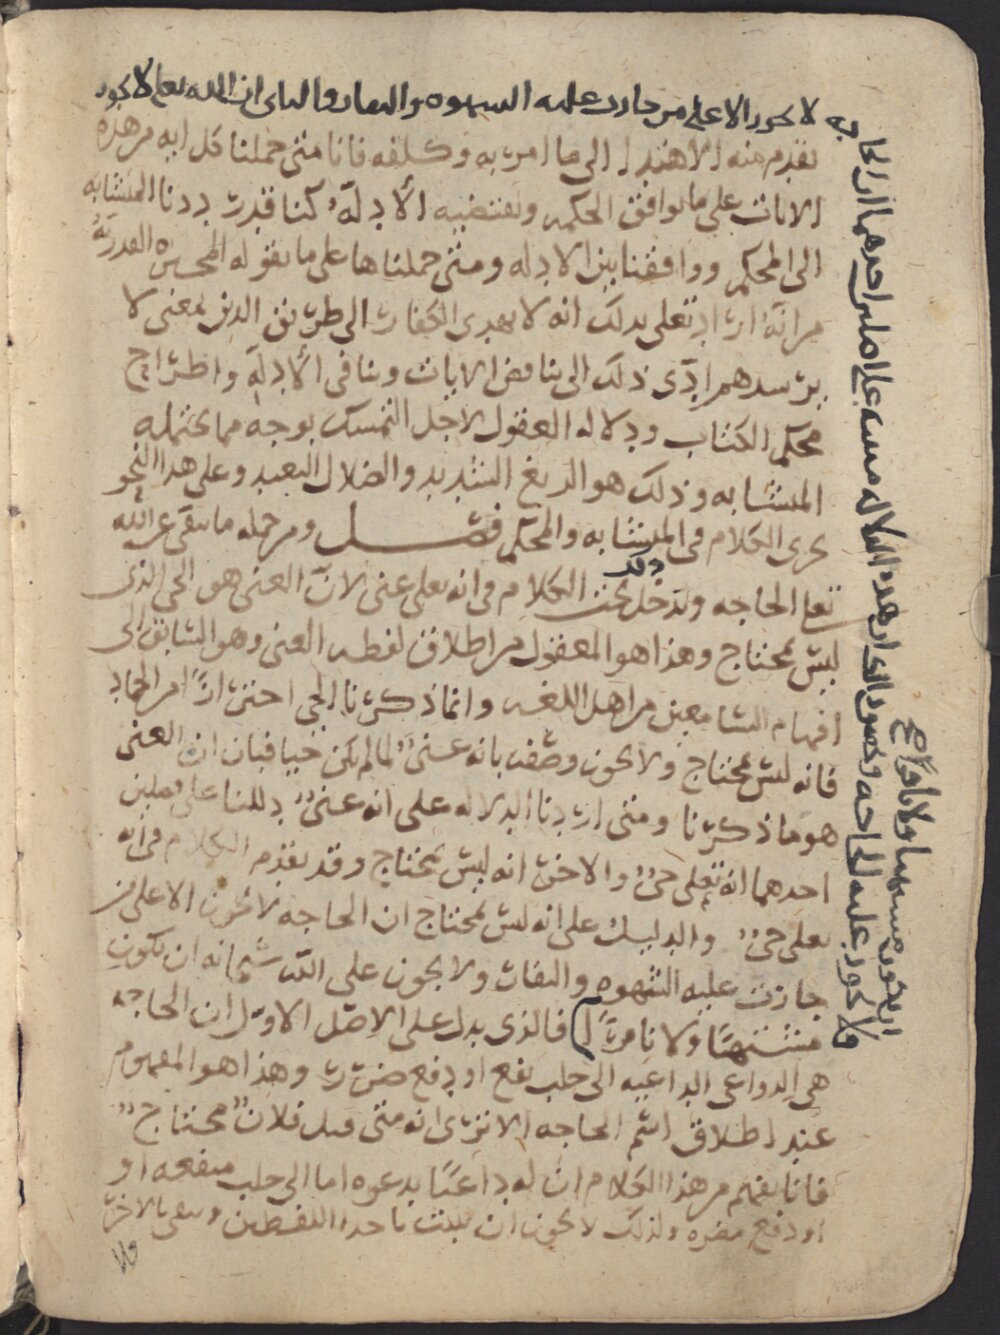 به لا يجوز الا على من جازت عليه الشهوه والنفار والثانى ان الله تعالى لا يجوز
تقدم منه الاهتدا الى ما امر به وكلفه فانا متى حملنا كل ايه من هذه
الايات على ما يوافق الحكمه وتقتضيه الأدلة كنا قد رددنا المتشابه
الى المحكم ووافقنا بين الادله ومتى حملناها على ما يقوله المجبره القدرية
من انه اراد تعلى بذلك انه لا يهدى الكفار الى طريق الدين بمعنى لا
يرشدهم ادّى ذلك الى تناقض الايات وتنافى الأدلة واطراح
محكم الكتاب ودلاله العقول لاجل التمسك بوجه مما يحتمله
المتشابه وذلك هو الزيغ الشديد والضلال البعيد وعلى هذا النحو
يجرى الكلام فى المتشابه والمحكم فصل ومن جمله ما ينفى عن الله
تعالى الحاجه وقد دخل تحت الكلام فى انه تعلى غنى لان الغنى هو الحى الذى
ليس بمحتاج وهذا هو المعقول من اطلاق لفظه الغنى وهو السابق الى
افهام السامعين من اهل اللغه وانما ذكرنا الحى احترازًا من الجماد
فانه ليس بمحتاج ولا يجوز وصفه بانه غنىٌ لما لم يكن حيا فبان ان الغنى
هو ما ذكرنا ومتى اردنا الدلاله على انه غنىٌ دللنا على فصلين
احدهما انه تعلى حىٌ والاخر انه ليس بمحتاج وقد تقدم الكلام فى انه
تعلى حىٌ والدليل على انه ليس بمحتاج ان الحاجه لا تجوز الا على من
جازت عليه الشهوه والنفار ولا يجوز على الله سبحانه ان يكون
مشتهيًا ولا نافرًا فالذى يدل على الاصل الاول ان الحاجه
هى الدواعى الداعيه الى جلب نفع او دفع ضرر وهذا هو المفهوم
عند اطلاق اسم الحاجه الا ترى انه متى قيل فلانٌ محتاجٌ
فانا نفهم من هذا الكلام ان له داعيًا يدعوه اما الى جلب منفعه او
او دفع مضره ولذلك لا يجوز ان يثبت باحد اللفظين وينفى بالاخر
ولا
وتحرير هذه الدلاله مبنيه على اصلين احدهما ان الحا
فلا يجوز عليه الحاجه
ان يكون مشتهيا ولا نافرا صح